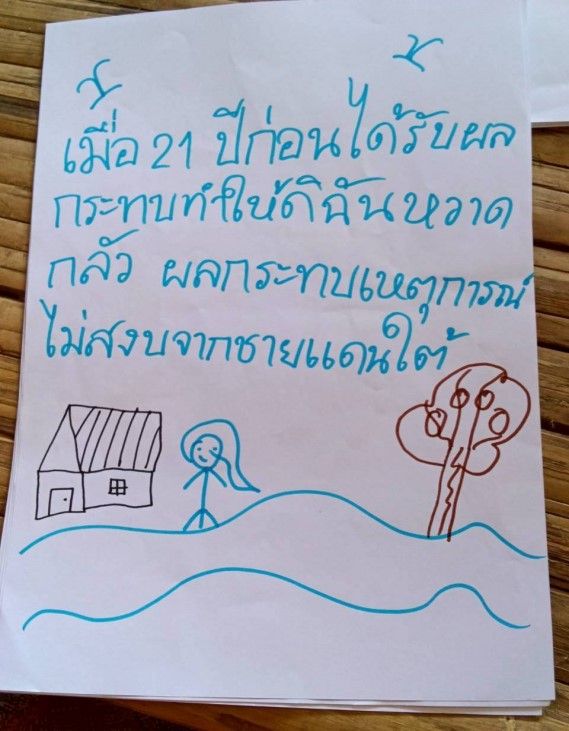 เมื่อ 21 ปีก่อนได้รับผล
กระทบทำให้ดิฉันหวาด
กลัว ผลกระทบเหตุการณ์
ไม่สงบจากชายแดนใต้